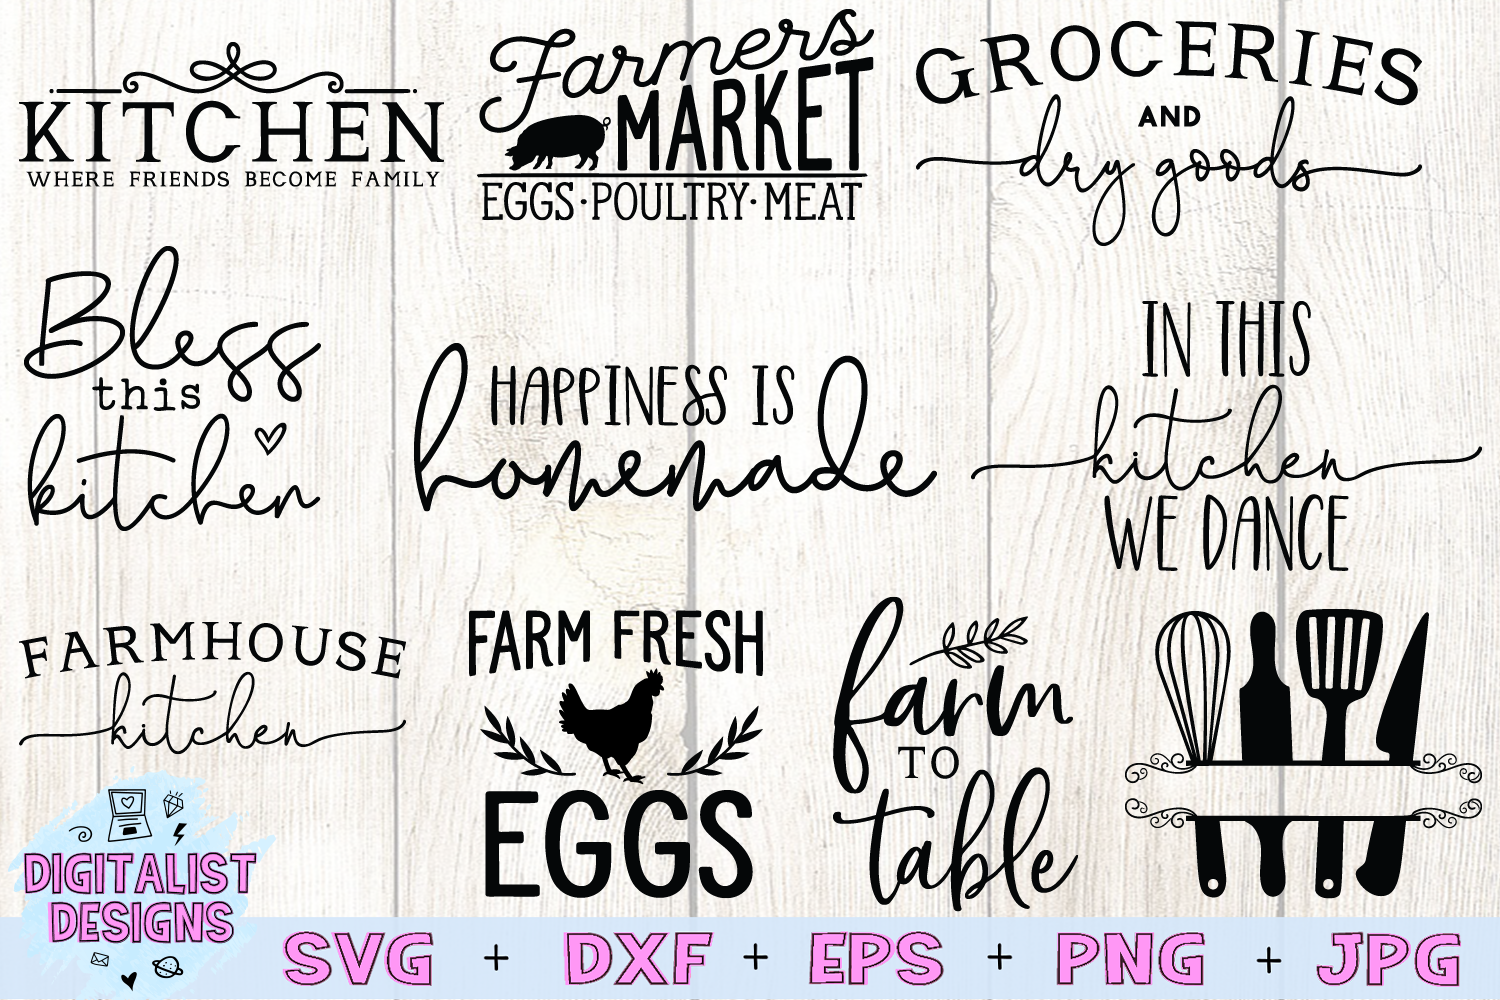 KITCHEN
WHERE FRIENDS BECOME FAMILY
Farmers
MARKET
EGGS·POULTRY·MEAT
GROCERIES
AND
dry goods
Bless
this
kitchen
HAPPINESS IS
homemade
IN THIS
kitchen
WE DANCE
FARMHOUSE
kitchen
FARM FRESH
EGGS
farm
TO
table
DIGITALIST
DESIGNS
SVG + DXF + EPS + PNG + JPG